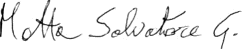 Motta Salvatore G.